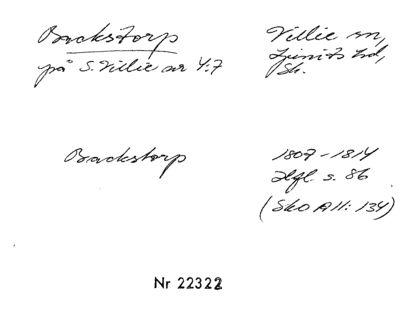 Backstorp
Villie sn,
på S. Villie nr 4:7
Ljunits hd,
Sk.
Backstorp
1807-1814
Hfl. s. 86
(SkO AII: 134)
Nr 22322